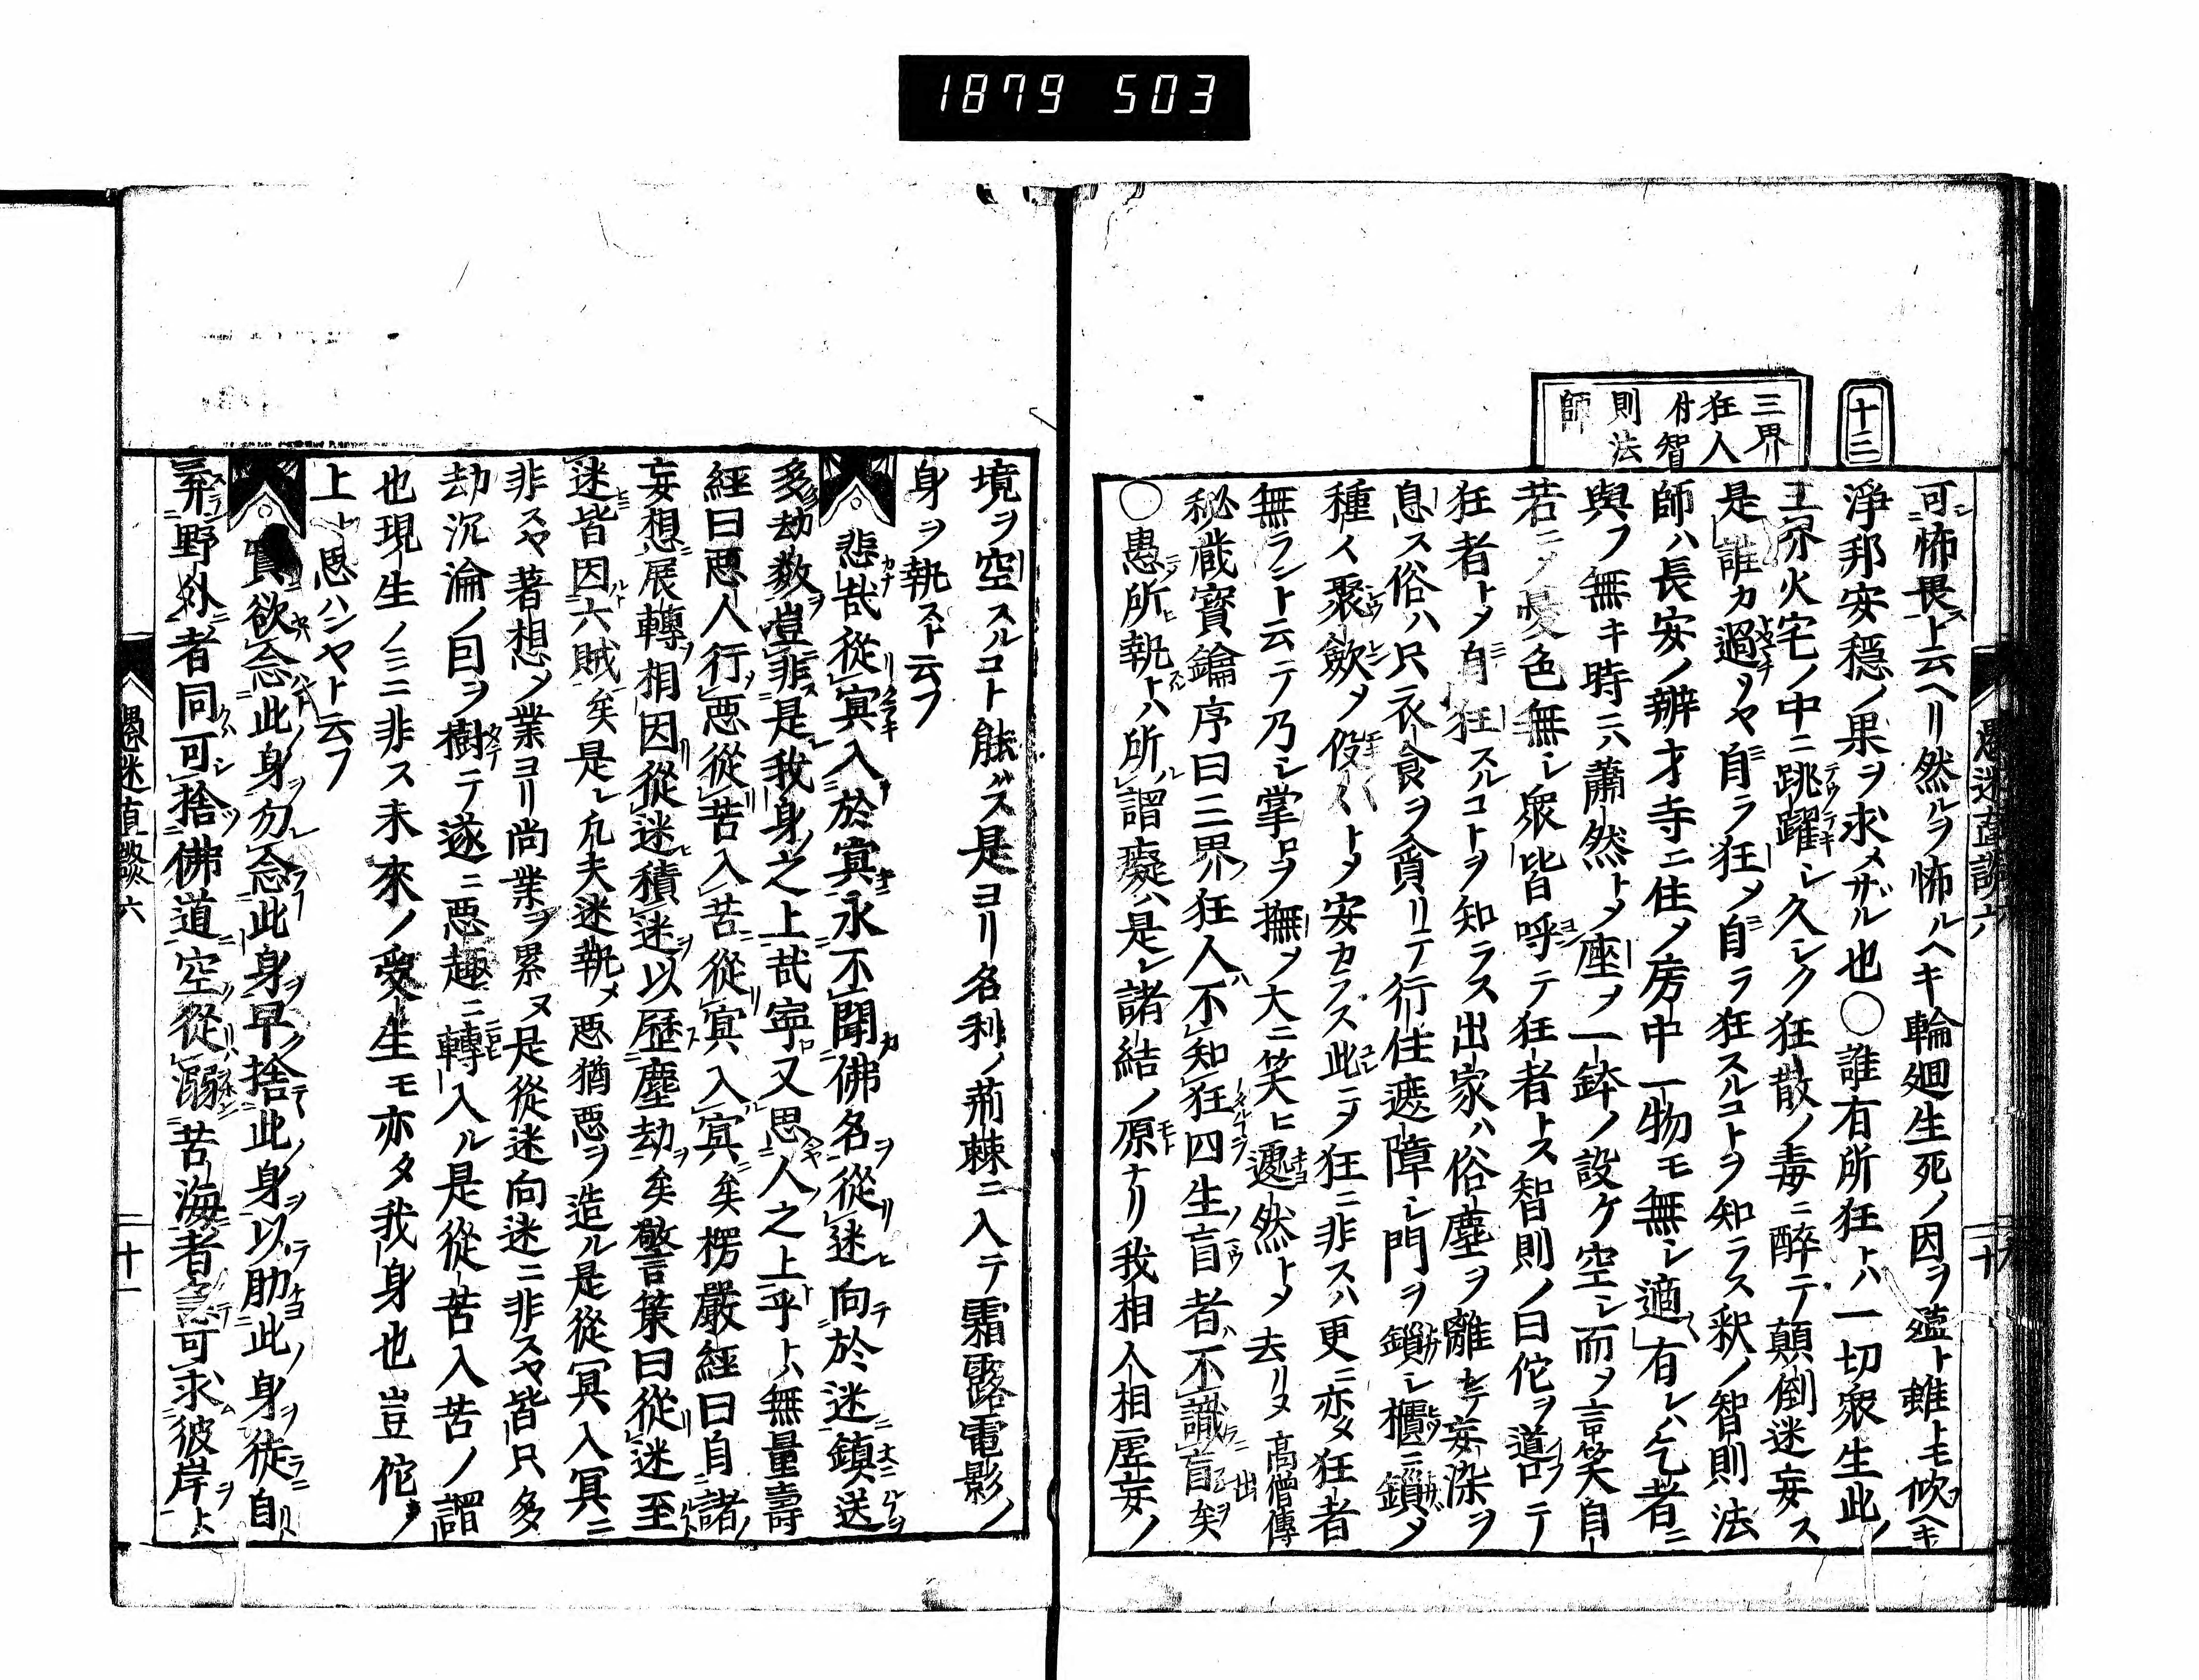 1879 503
十三
三界
狂人
付智
則法
師
可怖畏ト云ヘリ然ルヲ怖ルヘキ輪廻生死ノ因ヲ蘊ト雖トモ欣ヘキ
淨邦安穩ノ果ヲ求メザル也〇誰有所狂トハ一切衆生此ノ
三界火宅ノ中ニ跳躍シ久シク狂散ノ毒ニ醉テ顛倒迷妄ス
是誰カ過ソヤ自ラ狂メ自ラ狂スルコトヲ知ラス釈ノ智則法
師ハ長安ノ辨才寺ニ住ノ房中一物モ無シ適有レハ乞者ニ
與フ無キ時ハ蕭然トメ座ヲ一鉢ノ設ケ空シ而メ言笑自
若ニメ憂色無シ衆皆呼テ狂者トス智則ノ曰佗ヲ道ロテ
狂者トメ自狂スルコトヲ知ラス出家ハ俗塵ヲ離レテ妄染ヲ
息ス俗ハ只衣食ヲ貪リテ行住遮障シ門ヲ鎖シ櫃ニ鎖メ
種々聚歛メ役々トメ安カラス此ニメ狂ニ非スハ更ニ亦タ狂者
無ラント云テ乃シ掌ロヲ撫メ大ニ笑ヒ邊然トメ去リヌ高僧傳
秘蔵寶鑰序曰三界狂人不知狂四生盲者不識盲矣
〇愚所執トハ所謂癡ハ是レ諸結ノ原ナリ我相人相虚妄ノ
愚迷直談六
二十
境ヲ空スルコト能ハス是ヨリ名利ノ荊棘ニ入テ霜露電影ノ
身ヲ執スト云フ
悲哉從冥入於冥永不聞佛名從迷向於迷鎮送
多劫數豈非是我身之上哉寧又思人之上乎トハ無量壽
經曰惡人行惡從苦入苦從冥入冥矣楞嚴經曰自諸
妄想展轉相因從迷積迷以歷塵劫矣警策曰從迷至
迷皆因六賊矣是レ凡夫迷執メ惡猶惡ヲ造ル是從冥入冥ニ
非スヤ著想ノ業ヨリ尚業ヲ累ヌ是從迷向迷ニ非スヤ皆只多
劫沉淪ノ因ヲ樹テ遂ニ惡趣ニ轉入ル是從苦入苦ノ謂
也現生ノミニ非ス未來ノ受生モ亦タ我身也豈佗ノ
上ト思ハンヤト云フ
實欲念此身勿念此身早捨此身以助此身徒自
弃野外者同可捨佛道空從溺苦海者急可求彼岸ト
愚迷直談六
二十一